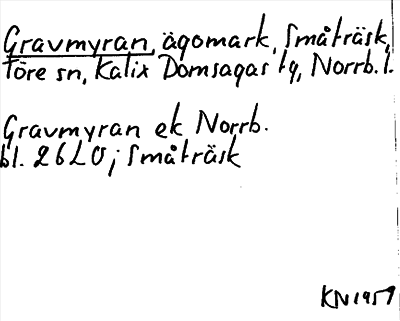 Gravmyran, ägomark, Småträsk,
Töre sn, Kalix Domsagas tg, Norrb. l.
Gravmyran ek Norrb.
bl. 26 L O; Småträsk
KN 1957